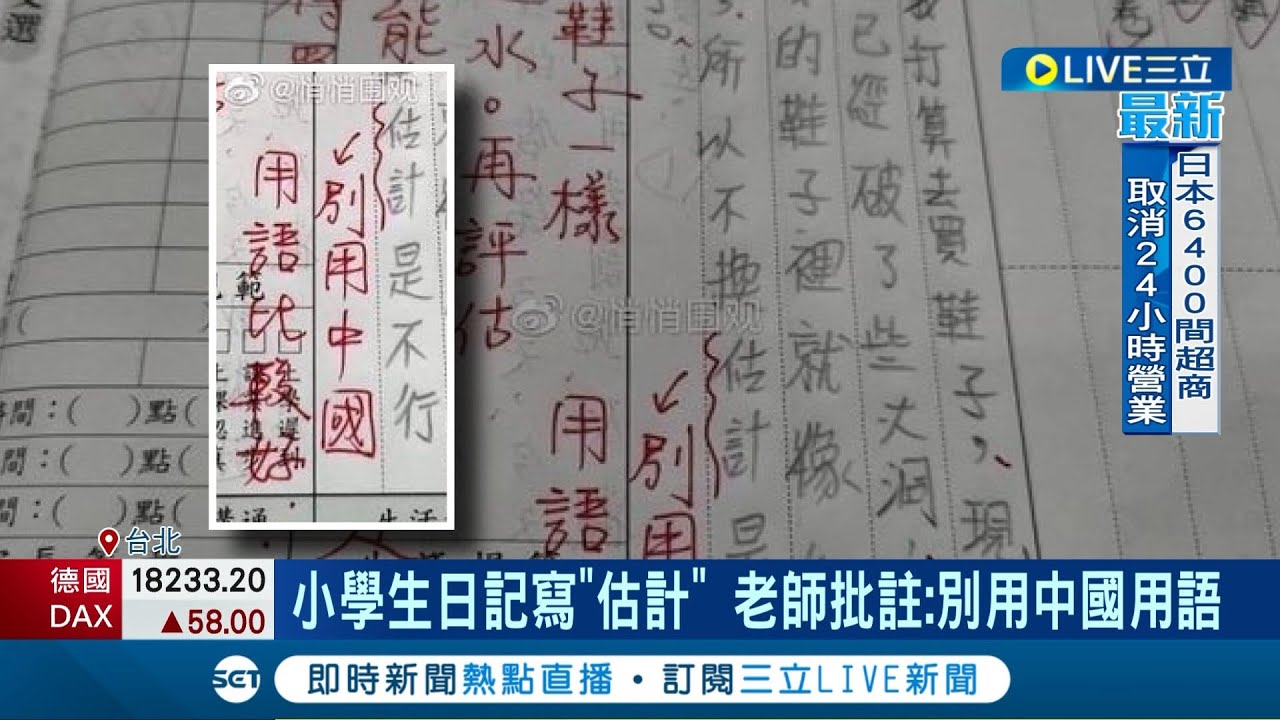 LIVE三立
最新
日本6400間超商
取消24小時營業
@悄悄围观
估計是不行
別用中國
用語比較好
打算去買鞋子,現
已經破了些大洞
的鞋子裡就像
所以不換估計是
別用
鞋子一樣
用語
水。再評估
能
@悄悄围观
間:( )點(
間:( )點(
間:( )點(
台北
德國
DAX
18233.20
▲58.00
小學生日記寫"估計" 老師批註:別用中國用語
SET
即時新聞熱點直播・訂閱三立LIVE新聞